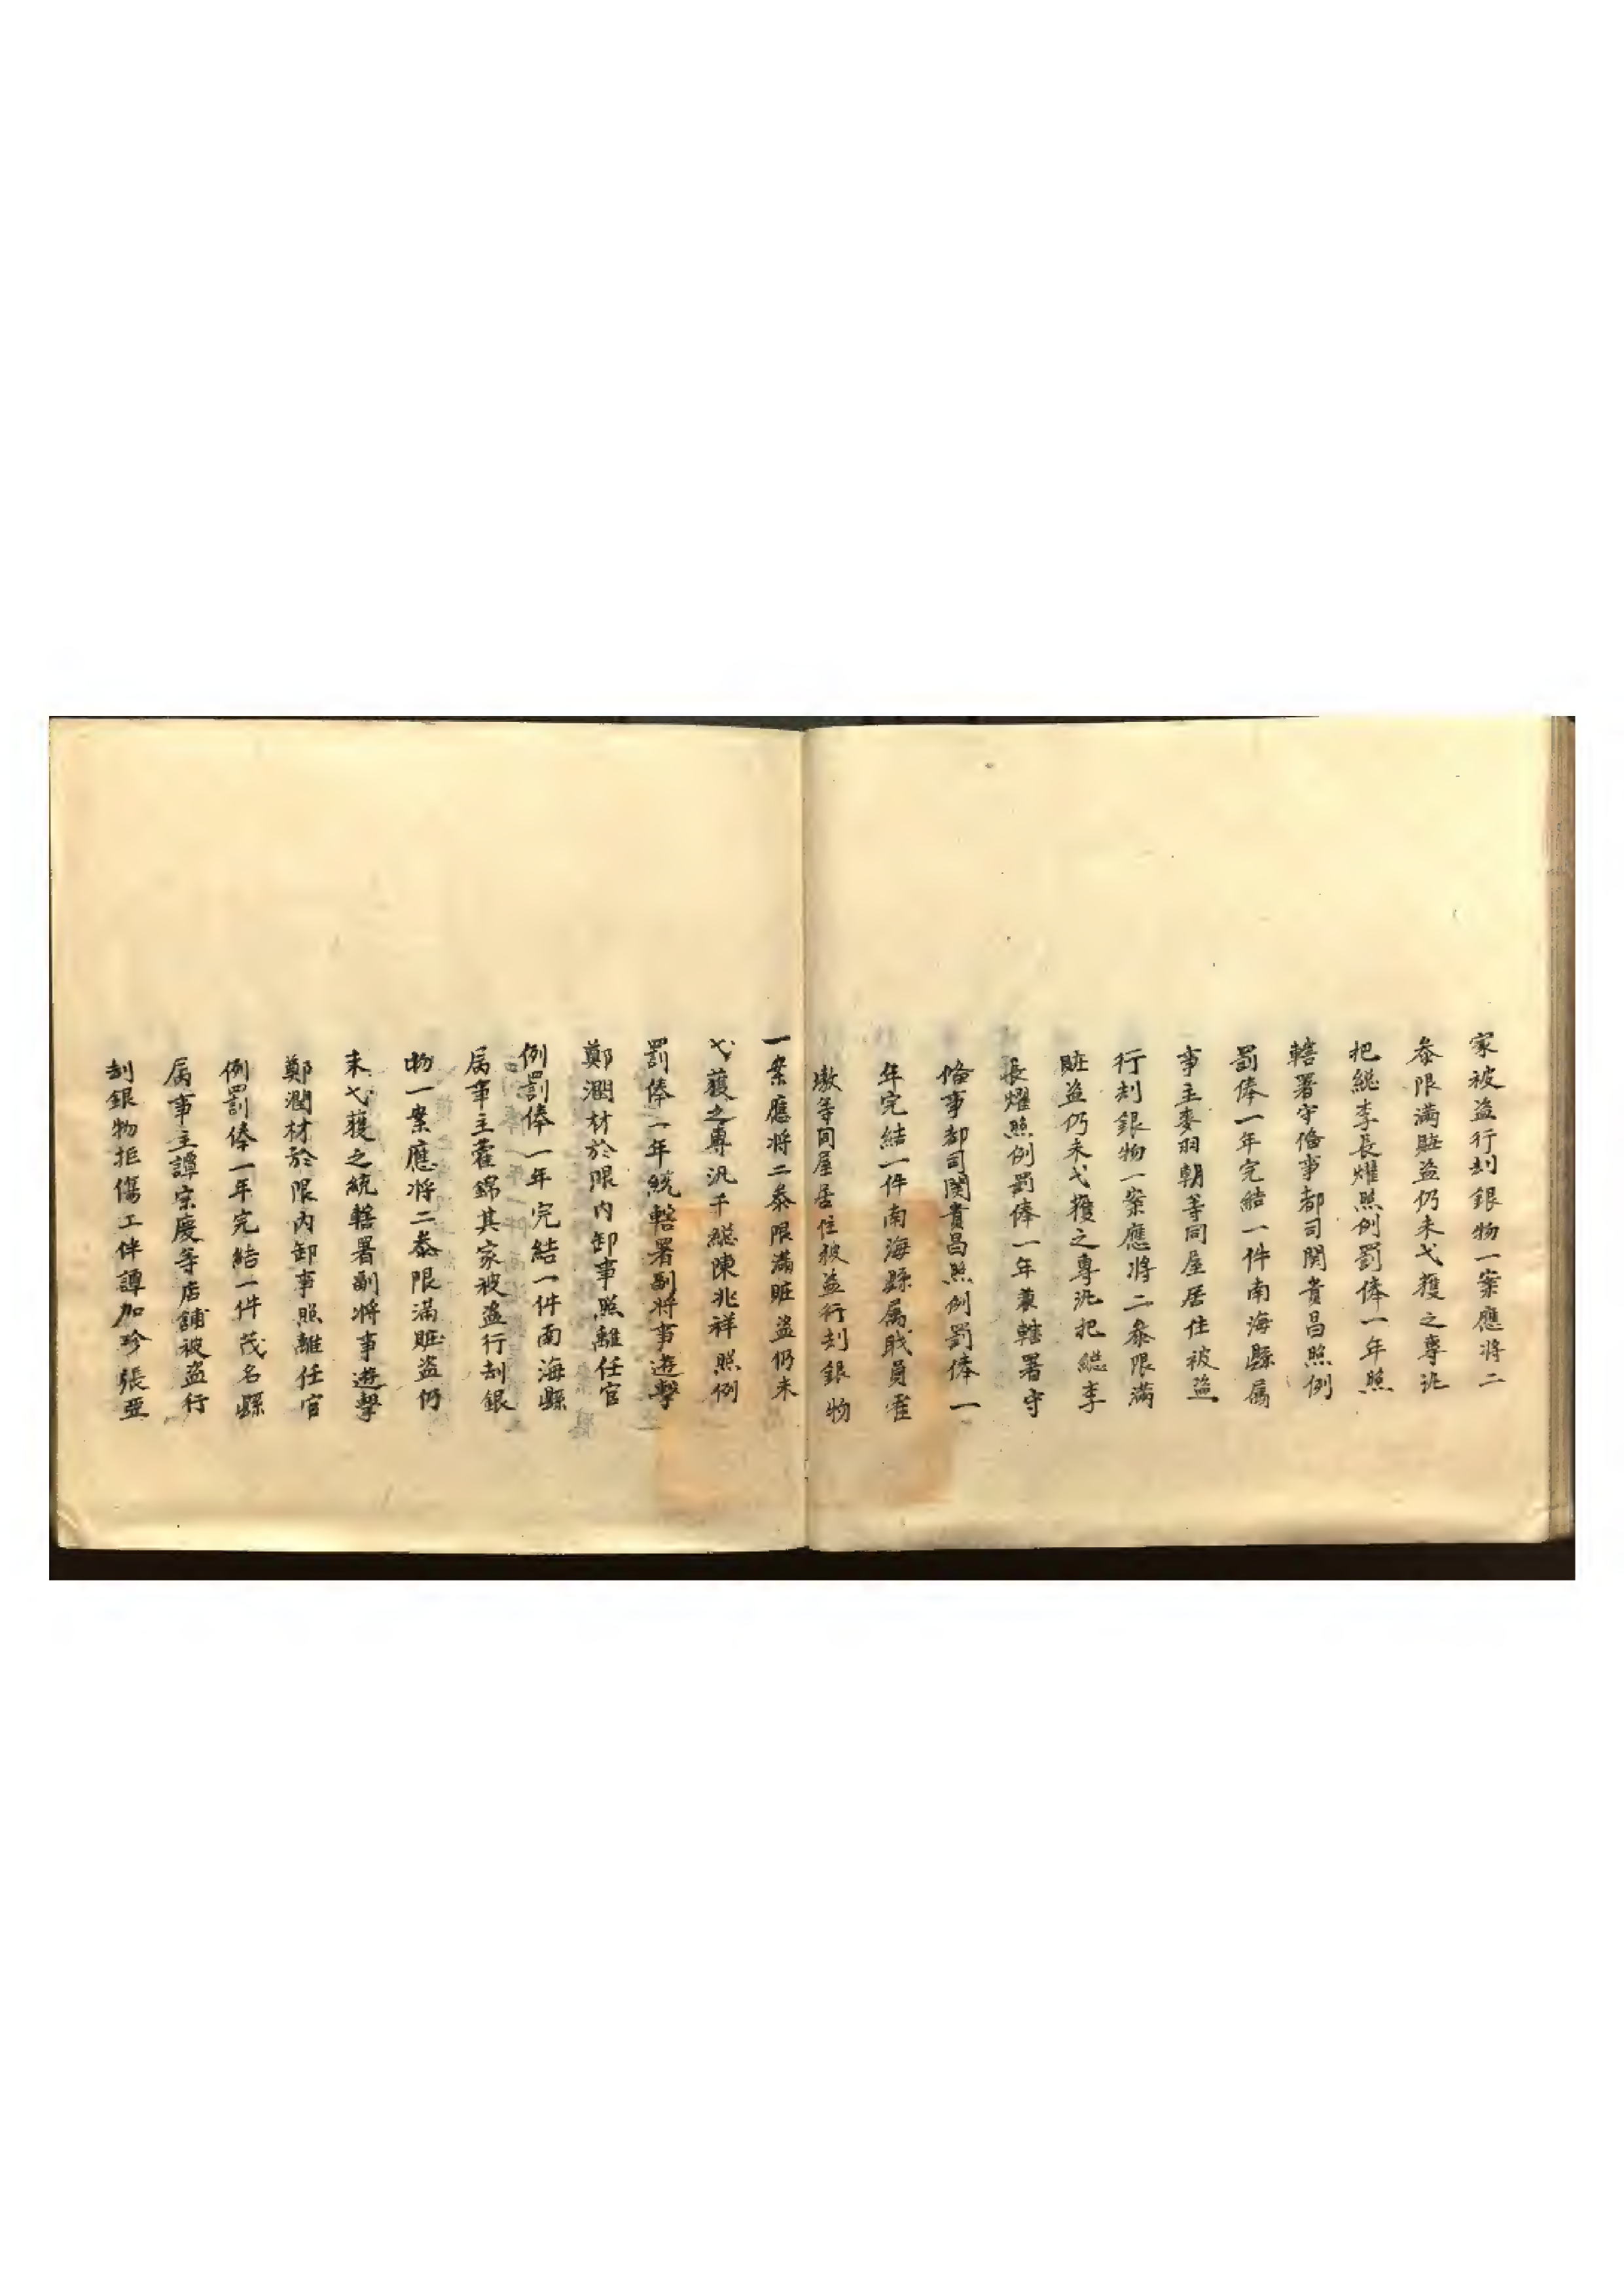 家被盗行刦銀物一案應將二
叅限滿賍盗仍未弋獲之專汛
把緫李長燿照例罰俸一年照
轄署守偹事都司関貴昌照例
罰俸一年完結一件南海縣属
事主麥羽朝等同屋居住被盗
行刦銀物一案應將二叅限滿
賍盗仍未弋獲之專汛把緫李
長燿照例罰俸一年兼轄署守
偹事都司関貴昌照例罰俸一
年完結一件南海縣属戝員霍
墩等同屋居住被盗行刦銀物
一案應將二叅限滿賍盗仍未
弋獲之專汛千緫陳兆祥照例
罰俸一年統轄署副將事遊擊
鄭潤材於限内卸事照離任官
例罰俸一年完結一件南海縣
属事主霍錦其家被盗行刦銀
物一案應將二叅限滿賍盗仍
未弋獲之統轄署副將事遊擊
鄭潤材於限内卸事照離任官
例罰俸一年完結一件茂名縣
属事主譚宗慶等店舖被盗行
刦銀物拒傷工伴譚加珍張亞